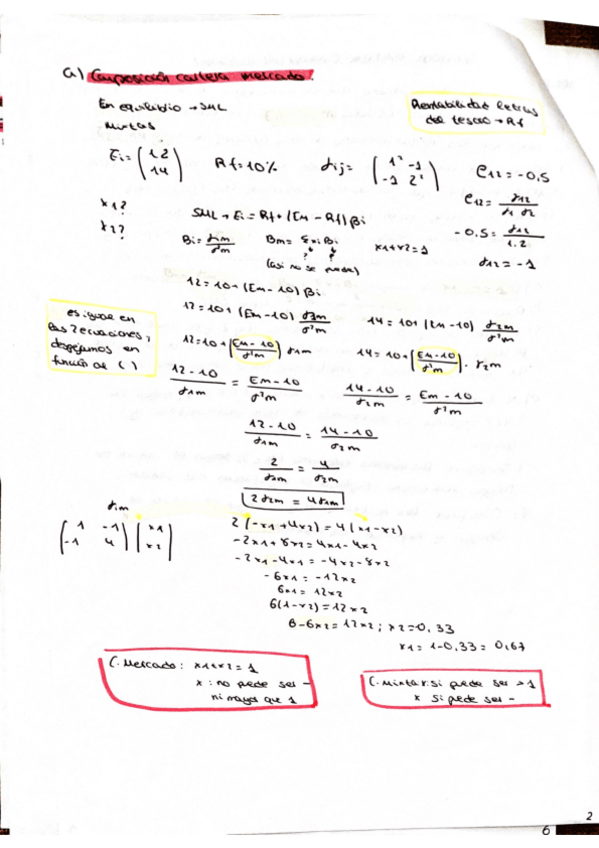 a) Composición cartera mercado:
En equilibrio → SML
Mixtas
Rentabilidad letras
del tesoro → Rf
Ei = (12 14) Rf = 10% σij = (1² -1 -1 2²) ρ12 = -0,5
x1?
x2?
ρ12 = σ12 / σ1 σ2
-0,5 = σ12 / 1.2
σ12 = -1
SML → Ei = Rf + (Em - Rf) βi
Bi = σim / σ²m Bm = Σxi Bi x1+x2 = 1
? ?
(así no se puede)
12 = 10 + (Em - 10) βi
12 = 10 + (Em - 10) σ1m / σ²m 14 = 10 + (Em - 10) σ2m / σ²m
es igual en
las 2 ecuaciones,
despejamos en
función de ( )
12 = 10 + (Em - 10 / σ²m) σ1m 14 = 10 + (Em - 10 / σ²m) . σ2m
12 - 10 / σ1m = Em - 10 / σ²m 14 - 10 / σ2m = Em - 10 / σ²m
12 - 10 / σ1m = 14 - 10 / σ2m
2 / σ1m = 4 / σ2m
2σ2m = 4σ1m
σim
(1 -1 -1 4) (x1 x2)
2(-x1 + 4x2) = 4(x1 - x2)
-2x1 + 8x2 = 4x1 - 4x2
-2x1 - 4x1 = -4x2 - 8x2
-6x1 = -12x2
6x1 = 12x2
6(1 - x2) = 12x2
6 - 6x2 = 12x2 ; x2 = 0,33
x1 = 1 - 0,33 = 0,67
C. Mercado: x1+x2 = 1
x: no puede ser -
ni mayor que 1
C. Mixtas: si puede ser > 1
x si puede ser -
2
6